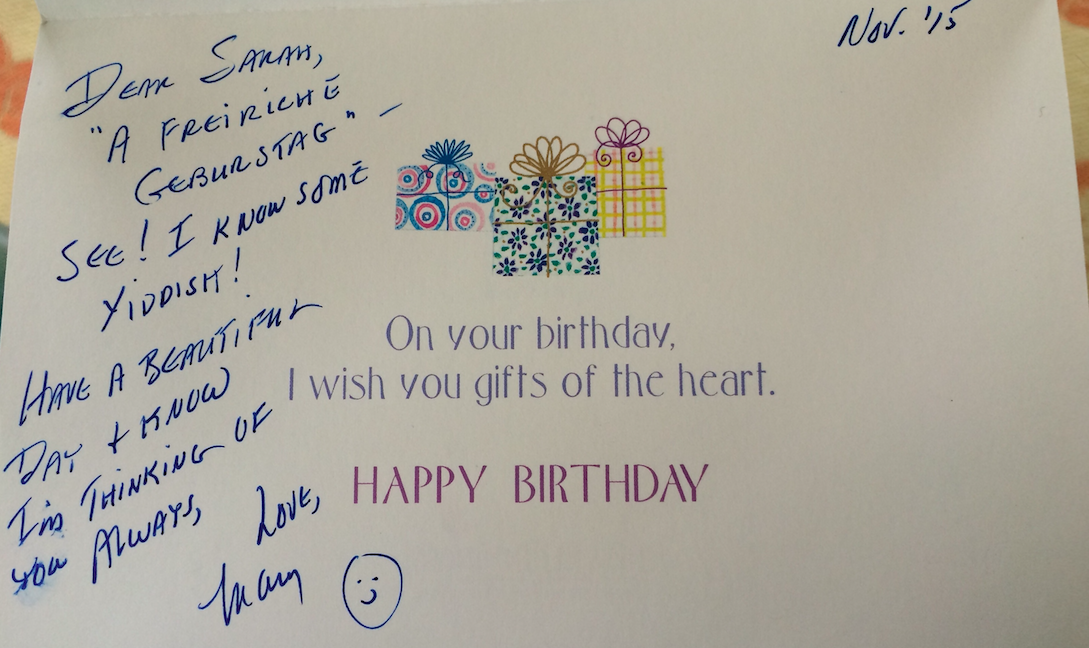 Nov. '15
DEAR SARAH,
"A FREIRICHE
GEBURSTAG" -
SEE! I KNOW SOME
YIDDISH!
HAVE A BEAUTIFUL
DAY & KNOW
I'm THINKING OF
YOU ALWAYS,
LOVE,
Mary
On your birthday,
I wish you gifts of the heart.
HAPPY BIRTHDAY